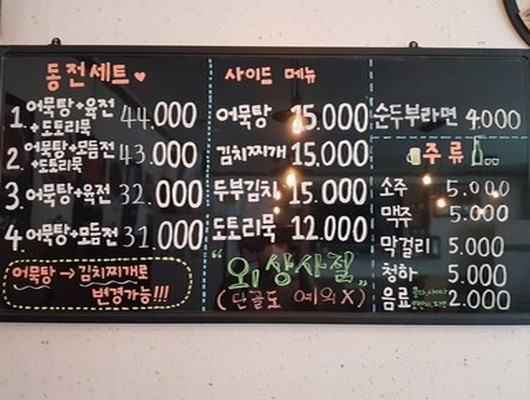 동전세트♥
1. 어묵탕+육전+도토리묵 44.000
2. 어묵탕+모듬전+도토리묵 43.000
3. 어묵탕+육전 32.000
4. 어묵탕+모듬전 31.000
어묵탕 → 김치찌개로
변경가능!!!
사이드 메뉴
어묵탕 15.000
김치찌개 15.000
두부김치 15.000
도토리묵 12.000
"외상사절"
(단골도 예외X)
순두부라면 4.000
주류
소주 5.000
맥주 5.000
막걸리 5.000
청하 5.000
음료 2.000